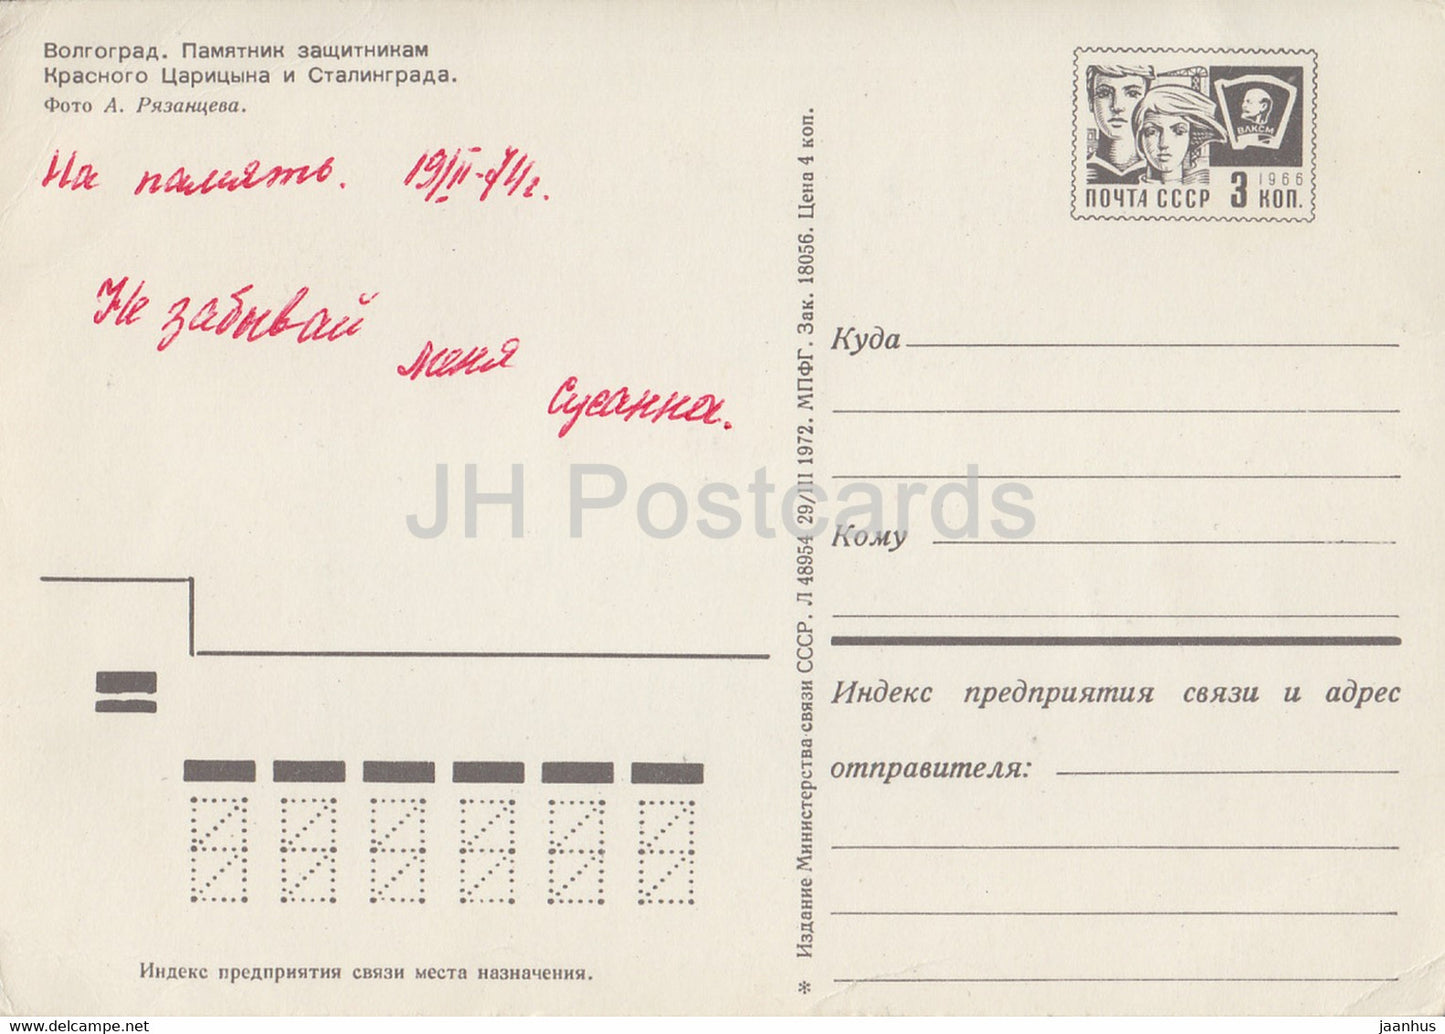 Волгоград. Памятник защитникам
Красного Царицына и Сталинграда.
Фото А. Рязанцева.
На память. 19/II-74г.
Не забывай
меня
Сусанна.
ВЛКСМ
1966
ПОЧТА СССР 3 КОП.
* Издание Министерства связи СССР. Л 48954 29/III 1972. МПФГ. Зак. 18056. Цена 4 коп.
Куда
Кому
Индекс предприятия связи и адрес
отправителя:
Индекс предприятия связи места назначения.
JH Postcards
www.delcampe.net
jaanhus